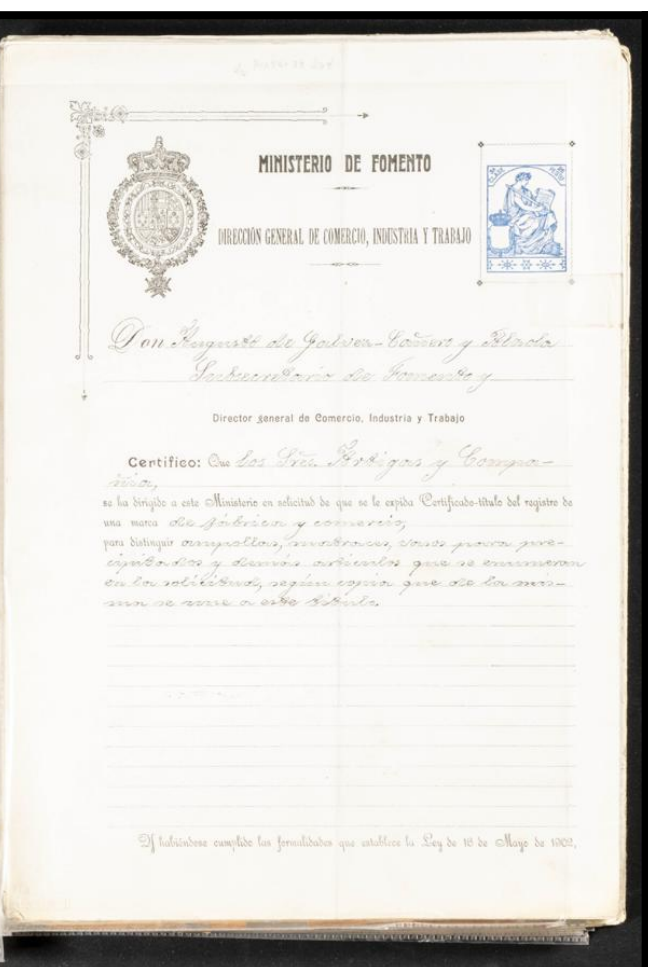 MINISTERIO DE FOMENTO
DIRECCIÓN GENERAL DE COMERCIO, INDUSTRIA Y TRABAJO
Don Augusto de Galvez-Cañero y
Subsecretario de Fomento y
Director general de Comercio, Industria y Trabajo
Certifico: Que los Sres. Artigas y Compa-
ñia,
se ha dirigido a este Ministerio en solicitud de que se le expida Certificado-título del registro de
una marca de fábrica y comercio,
para distinguir ampollas, matraces, vasos para pre-
cipitados y demás artículos que se enumeran
en la solicitud, según copia que de la mis-
ma se une a este título.
Y habiéndose cumplido las formalidades que establece la Ley de 16 de Mayo de 1902,